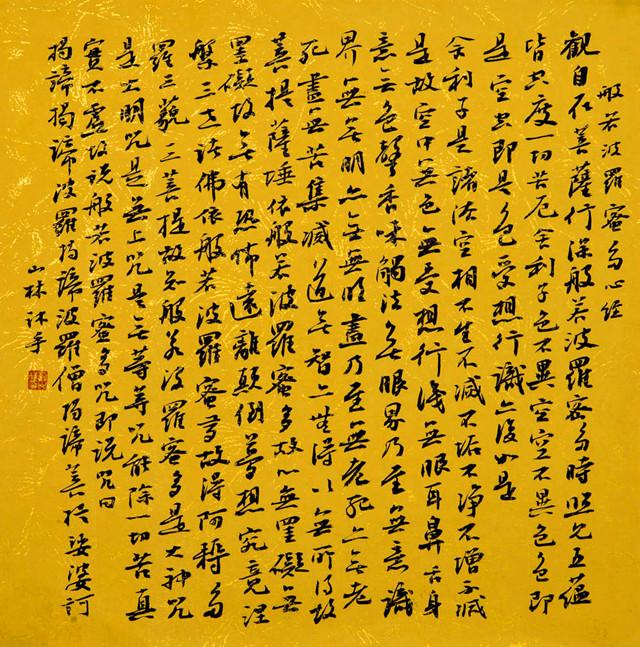 般若波羅蜜多心經
觀自在菩薩行深般若波羅蜜多時照見五蘊
皆空度一切苦厄舍利子色不異空空不異色色即
是空空即是色受想行識亦復如是
舍利子是諸法空相不生不滅不垢不淨不增不減
是故空中無色無受想行識無眼耳鼻舌身
意無色聲香味觸法無眼界乃至無意識
界無無明亦無無明盡乃至無老死亦無老
死盡無苦集滅道無智亦無得以無所得故
菩提薩埵依般若波羅蜜多故心無罣礙無
罣礙故無有恐怖遠離顛倒夢想究竟涅
槃三世諸佛依般若波羅蜜多故得阿耨多
羅三藐三菩提故知般若波羅蜜多是大神咒
是大明咒是無上咒是無等等咒能除一切苦真
實不虛故說般若波羅蜜多咒即說咒曰
揭諦揭諦波羅揭諦波羅僧揭諦菩提娑婆訶
山林沐手